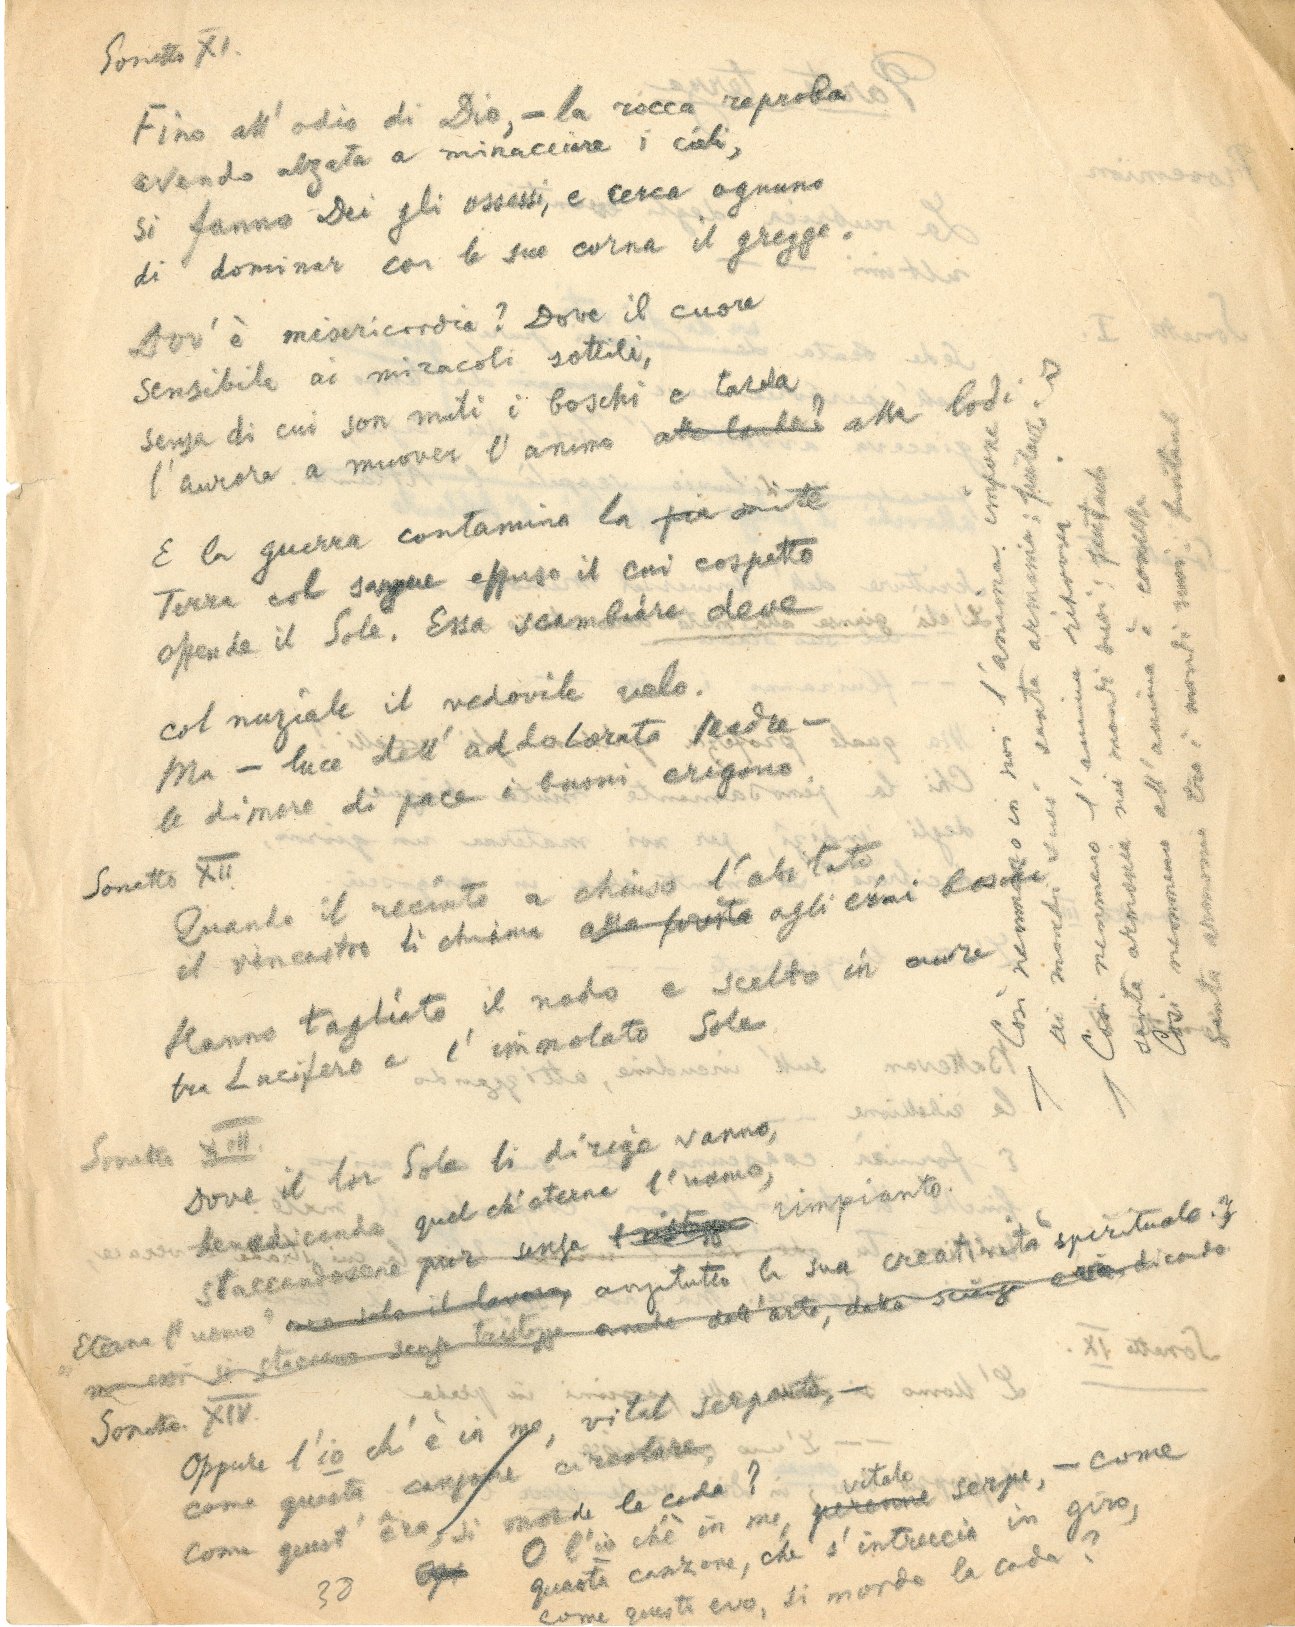 Sonetto XI.
Fino all' odio di Dio, – la rocca reproba
avendo alzata a minacciare i cieli,
si fanno Dei gli ossessi, e cerca ognuno
di dominar con le sue corna il gregge.
Dov' è misericordia? Dove il cuore
sensibile ai miracoli sottili,
senza di cui son muti i boschi e tarda
l' aurora a muover l' animo alle laudi? alla lodi?
E la guerra contamina la pia mite
Terra col sangue effuso il cui cospetto
offende il Sole. Essa scambiare deve
col nuziale il vedovile velo.
Ma – luce dell' addolorata Madre –
le dimore di pace i buoni erigono.
Sonetto XII
Quando il recinto a chiuso l' abitato
il vincastro li chiama alla foresta agli esimi boschi
Hanno tagliato il nodo e scelto in cuore
tra Lucifero e l' immolato Sole
Sonetto XIII.
Dove il lor Sole li dirige vanno,
benedicendo quel ch' eterna l' uomo,
staccandosene pur senza rimpianto.
"Eterna l' uomo" non solo il lavoro, anzitutto la sua creatività spirituale.
ma essi si staccano senza tristezza anche dall' arte, dalla scienza
Sonetto XIV.
Oppure l' io ch' è in me, vital serpente, –
come questa canzone circolare,
come quest' êra, si morde la coda?
O l' io ch' è in me, perenne vitale serpe, – come
questa canzone, che s' intreccia in giro,
come questo evo, si morde la coda?
30
Così nemmeno in noi l' anima impone
ai mondi suoi santa armonia:
Così nemmeno l' anima ritrova
santa armonia nei mondi suoi:
Così nemmeno all' anima è concessa
Santa armonia tra i mondi suoi: